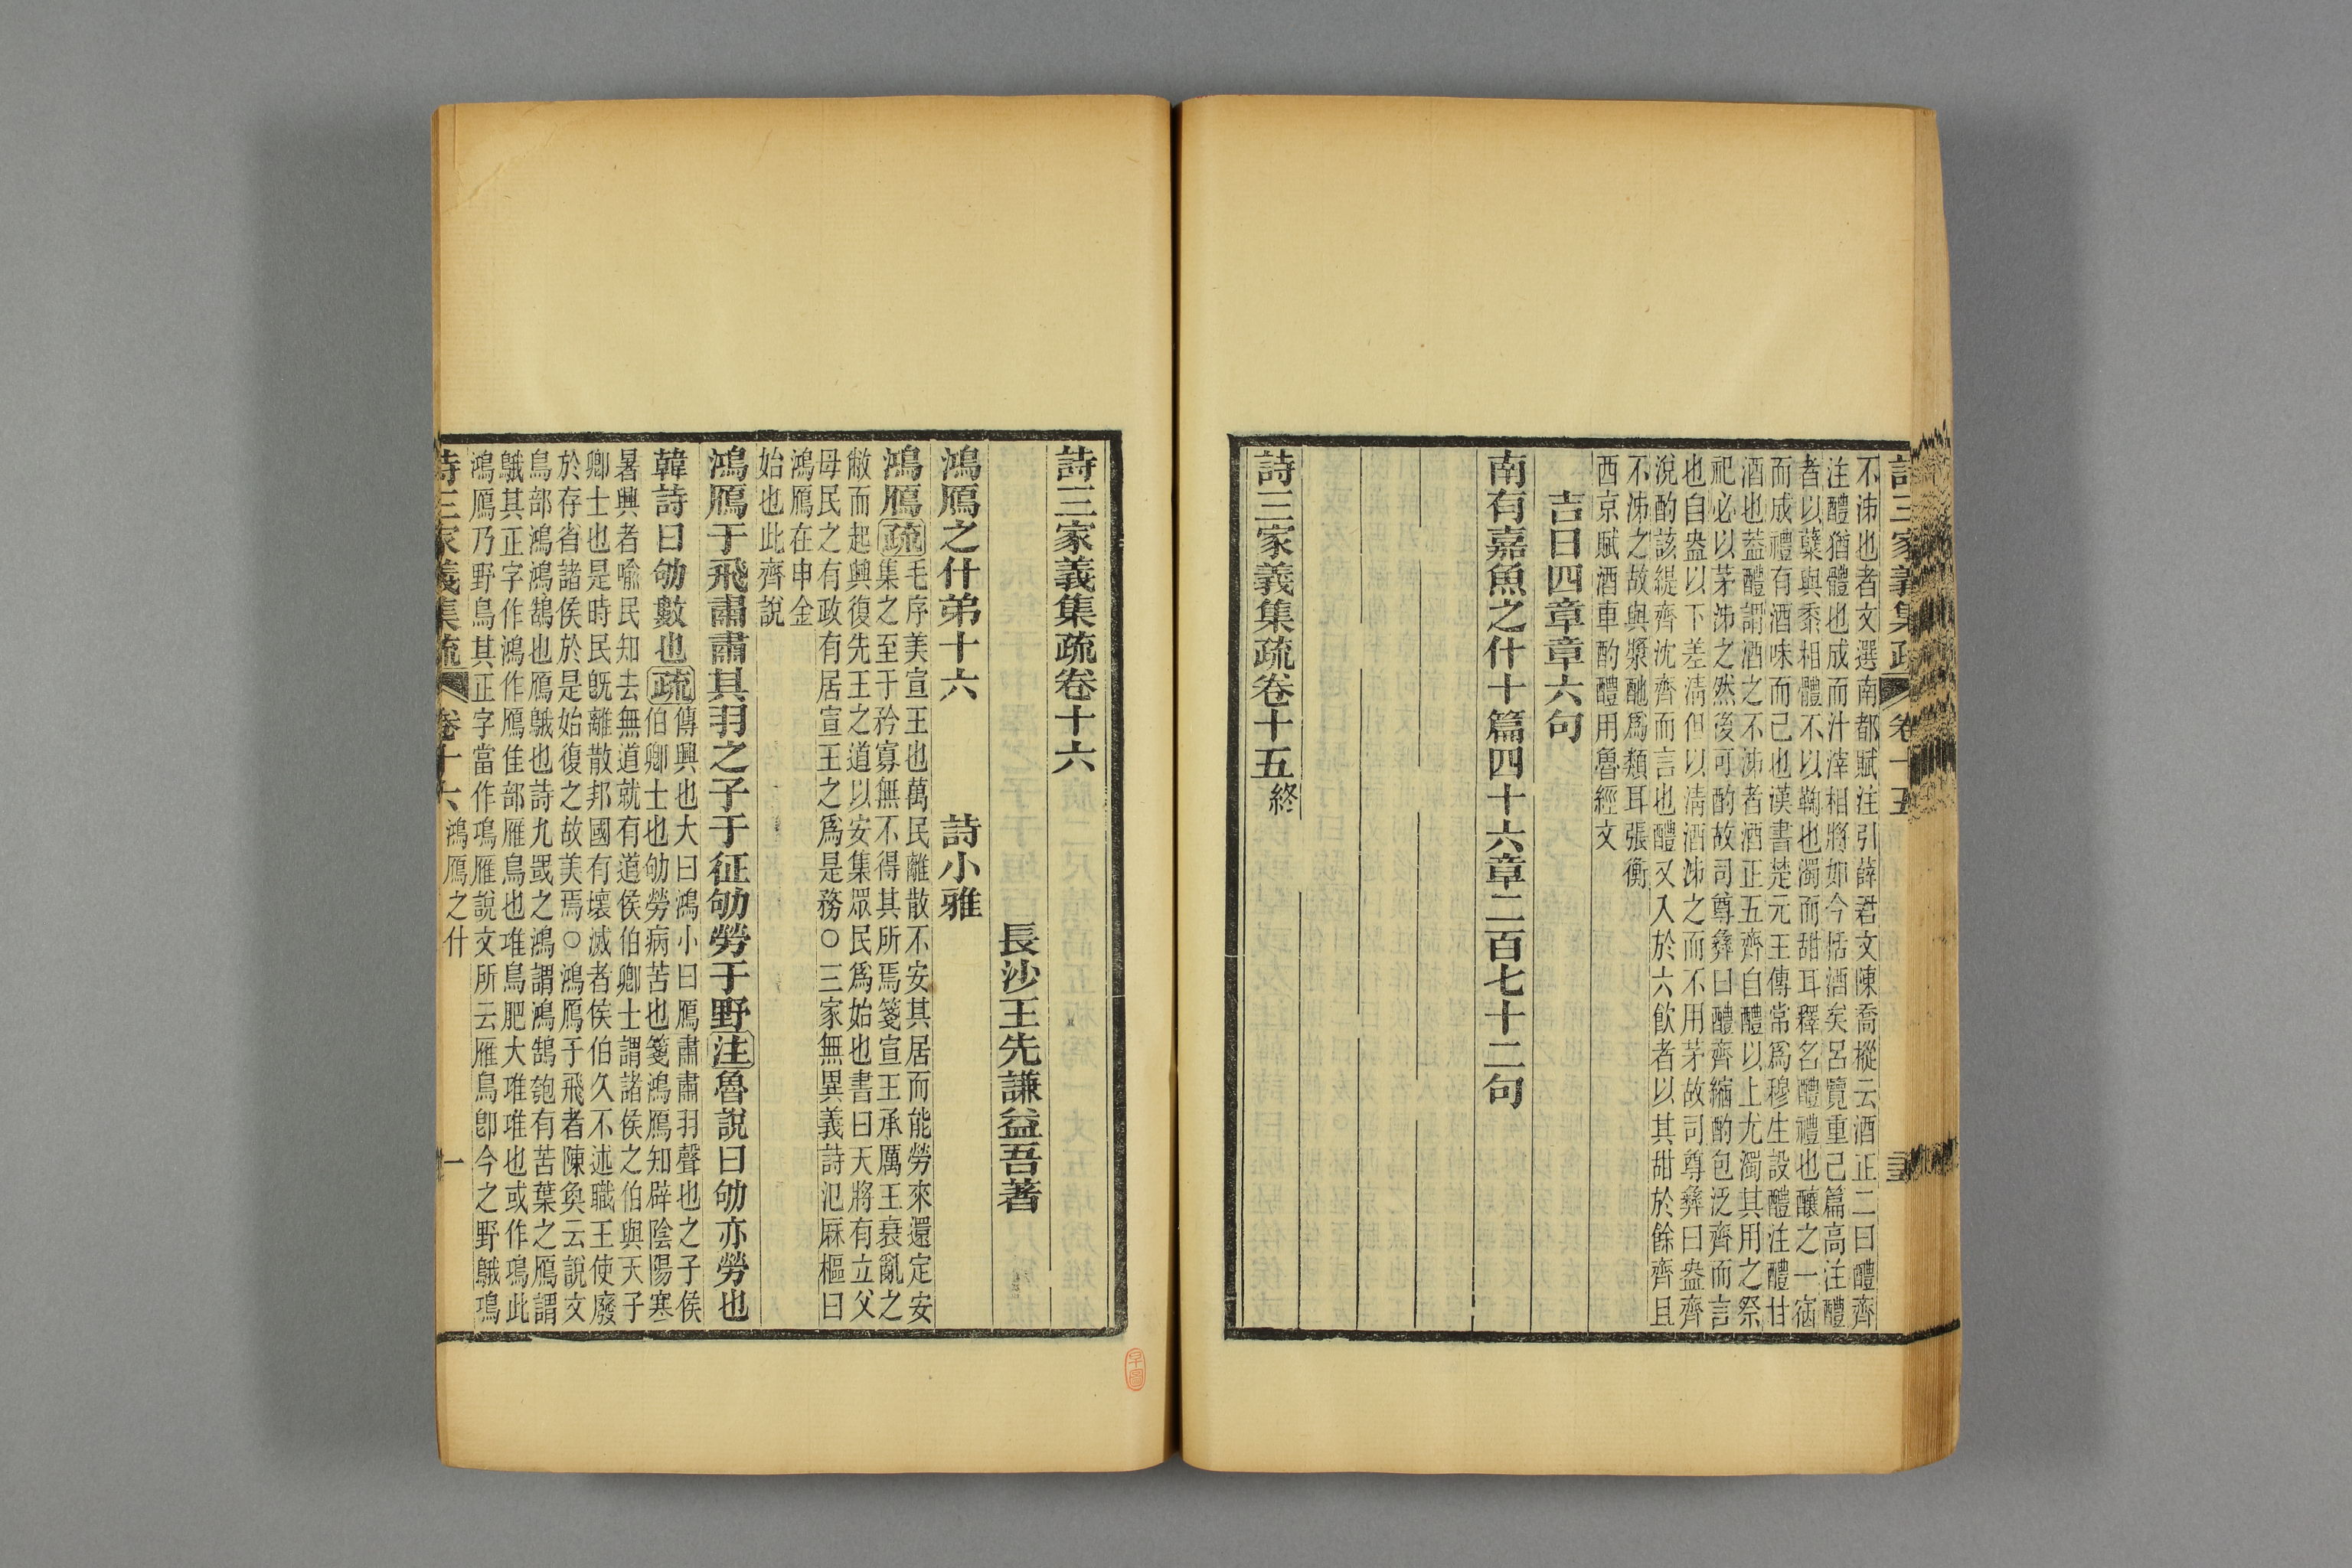 不沸也者文選南都賦注引薛君文陳喬樅云酒正二曰醴齊
注醴猶體也成而汁滓相將如今恬酒矣呂覽重己篇高注醴
者以糵與黍相體不以麴也濁而甜耳釋名醴禮也釀之一宿
而成禮有酒味而已也漢書楚元王傳常爲穆生設醴注醴甘
酒也蓋醴謂酒之不沸者酒正五齊自醴以上尤濁其用之祭
祀必以茅沸之然後可酌故司尊彝曰醴齊縮酌包泛齊而言
也自盎以下差淸但以淸酒沸之而不用茅故司尊彝曰盎齊
涗酌該緹齊沈齊而言也醴又入於六飮者以其甜於餘齊且
不沸之故與漿酏爲類耳張衡
西京賦酒車酌醴用魯經文
吉日四章章六句
南有嘉魚之什十篇四十六章二百七十二句
詩三家義集疏卷十五終
詩三家義集疏卷十六
長沙王先謙益吾著
鴻鴈之什弟十六 詩小雅
鴻鴈疏毛序美宣王也萬民離散不安其居而能勞來還定安
集之至于矜寡無不得其所焉箋宣王承厲王衰亂之
敝而起興復先王之道以安集眾民爲始也書曰天將有立父
母民之有政有居宣王之爲是務○三家無異義詩氾厤樞曰
鴻鴈在申金
始也此齊說
鴻鴈于飛肅肅其羽之子于征劬勞于野注魯說曰劬亦勞也
韓詩曰劬數也疏傳興也大曰鴻小曰鴈肅肅羽聲也之子侯
伯卿士也劬勞病苦也箋鴻鴈知辟陰陽寒
暑興者喻民知去無道就有道侯伯卿士謂諸侯之伯與天子
卿士也是時民旣離散邦國有壞滅者侯伯久不述職王使廢
於存省諸侯於是始復之故美焉○鴻鴈于飛者陳奐云說文
鳥部鴻鴻鵠也鴈䳘也詩九罭之鴻謂鴻鵠匏有苦葉之鴈謂
䳘其正字作鴻作鴈隹部雁鳥也琟鳥肥大琟琟也或作鳿此
鴻鴈乃野鳥其正字當作鳿雁說文所云雁鳥卽今之野䳘鳿
詩三家義集疏 卷十六 鴻鴈之什 一